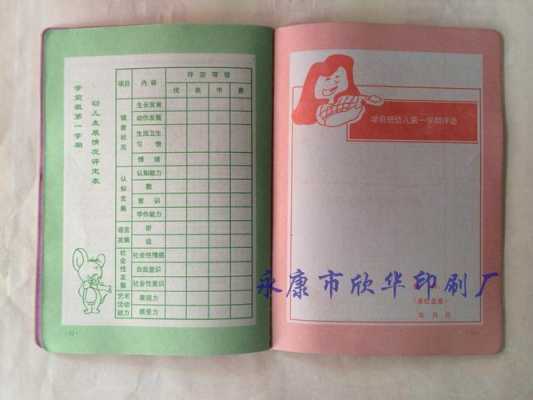 学前班第一学期
幼儿发展情况评定表
项目 内容 评定等级
优 良 中 差
健康状况
生长发育
动作发展
生活卫生
习惯
情绪
认知发展
认知能力
数
常识
学作能力
语言发展
听
说
社会性发展
社会性情感
自我意识
社会性常识
艺术活动能力
表现力
感受力
学前班幼儿第一学期评语
年 月 日
永康市欣华印刷厂